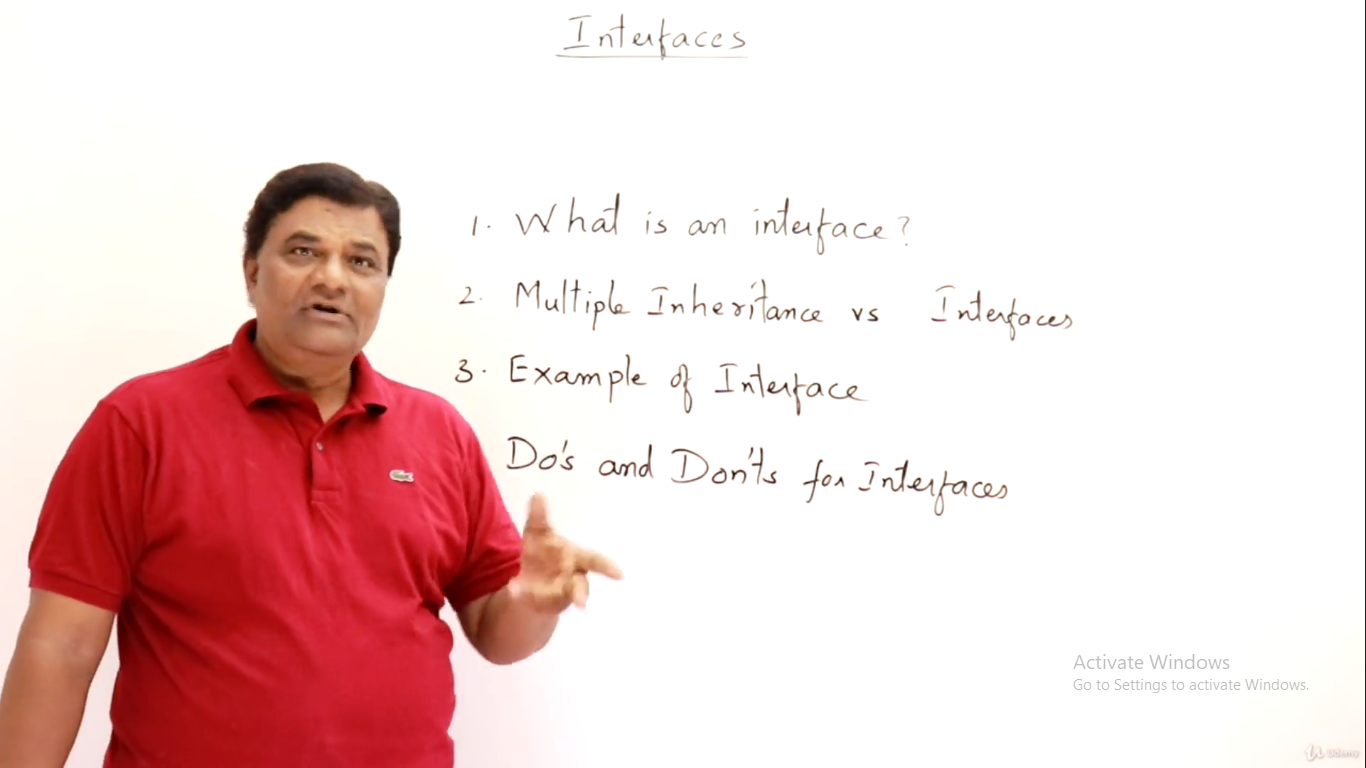 Interfaces
1. What is an interface?
2. Multiple Inheritance vs Interfaces
3. Example of Interface
Do's and Don'ts for Interfaces
Activate Windows
Go to Settings to activate Windows.
Udemy